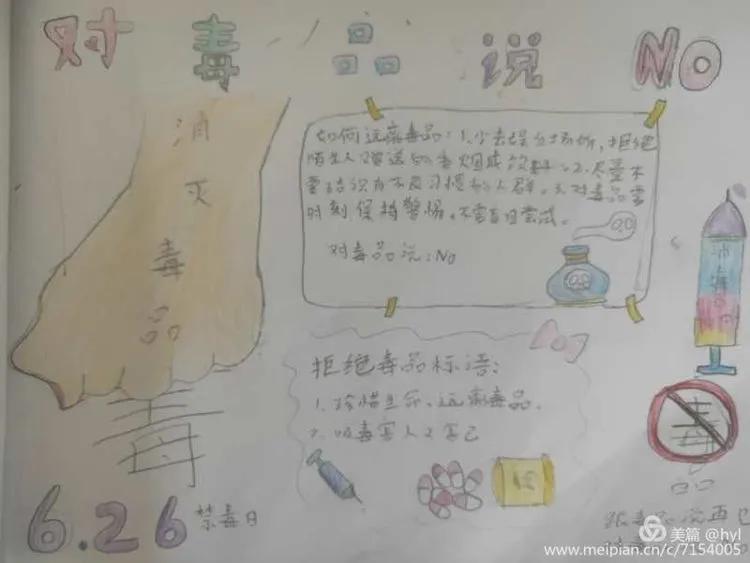 对毒品说NO
消灭毒品
如何远离毒品：1.少去娱乐场所，拒绝
陌生人赠送的香烟或饮料。2.尽量不
要结识有不良习惯的人群。3.对毒品要
时刻保持警惕。不要盲目尝试。
对毒品说：No
消毒
拒绝毒品标语：
1.珍惜生命、远离毒品.
2.吸毒害人又害己
毒
毒
品
6.26禁毒日
跟毒品说再见
美篇 @hyl
www.meipian.cn/c/7154005